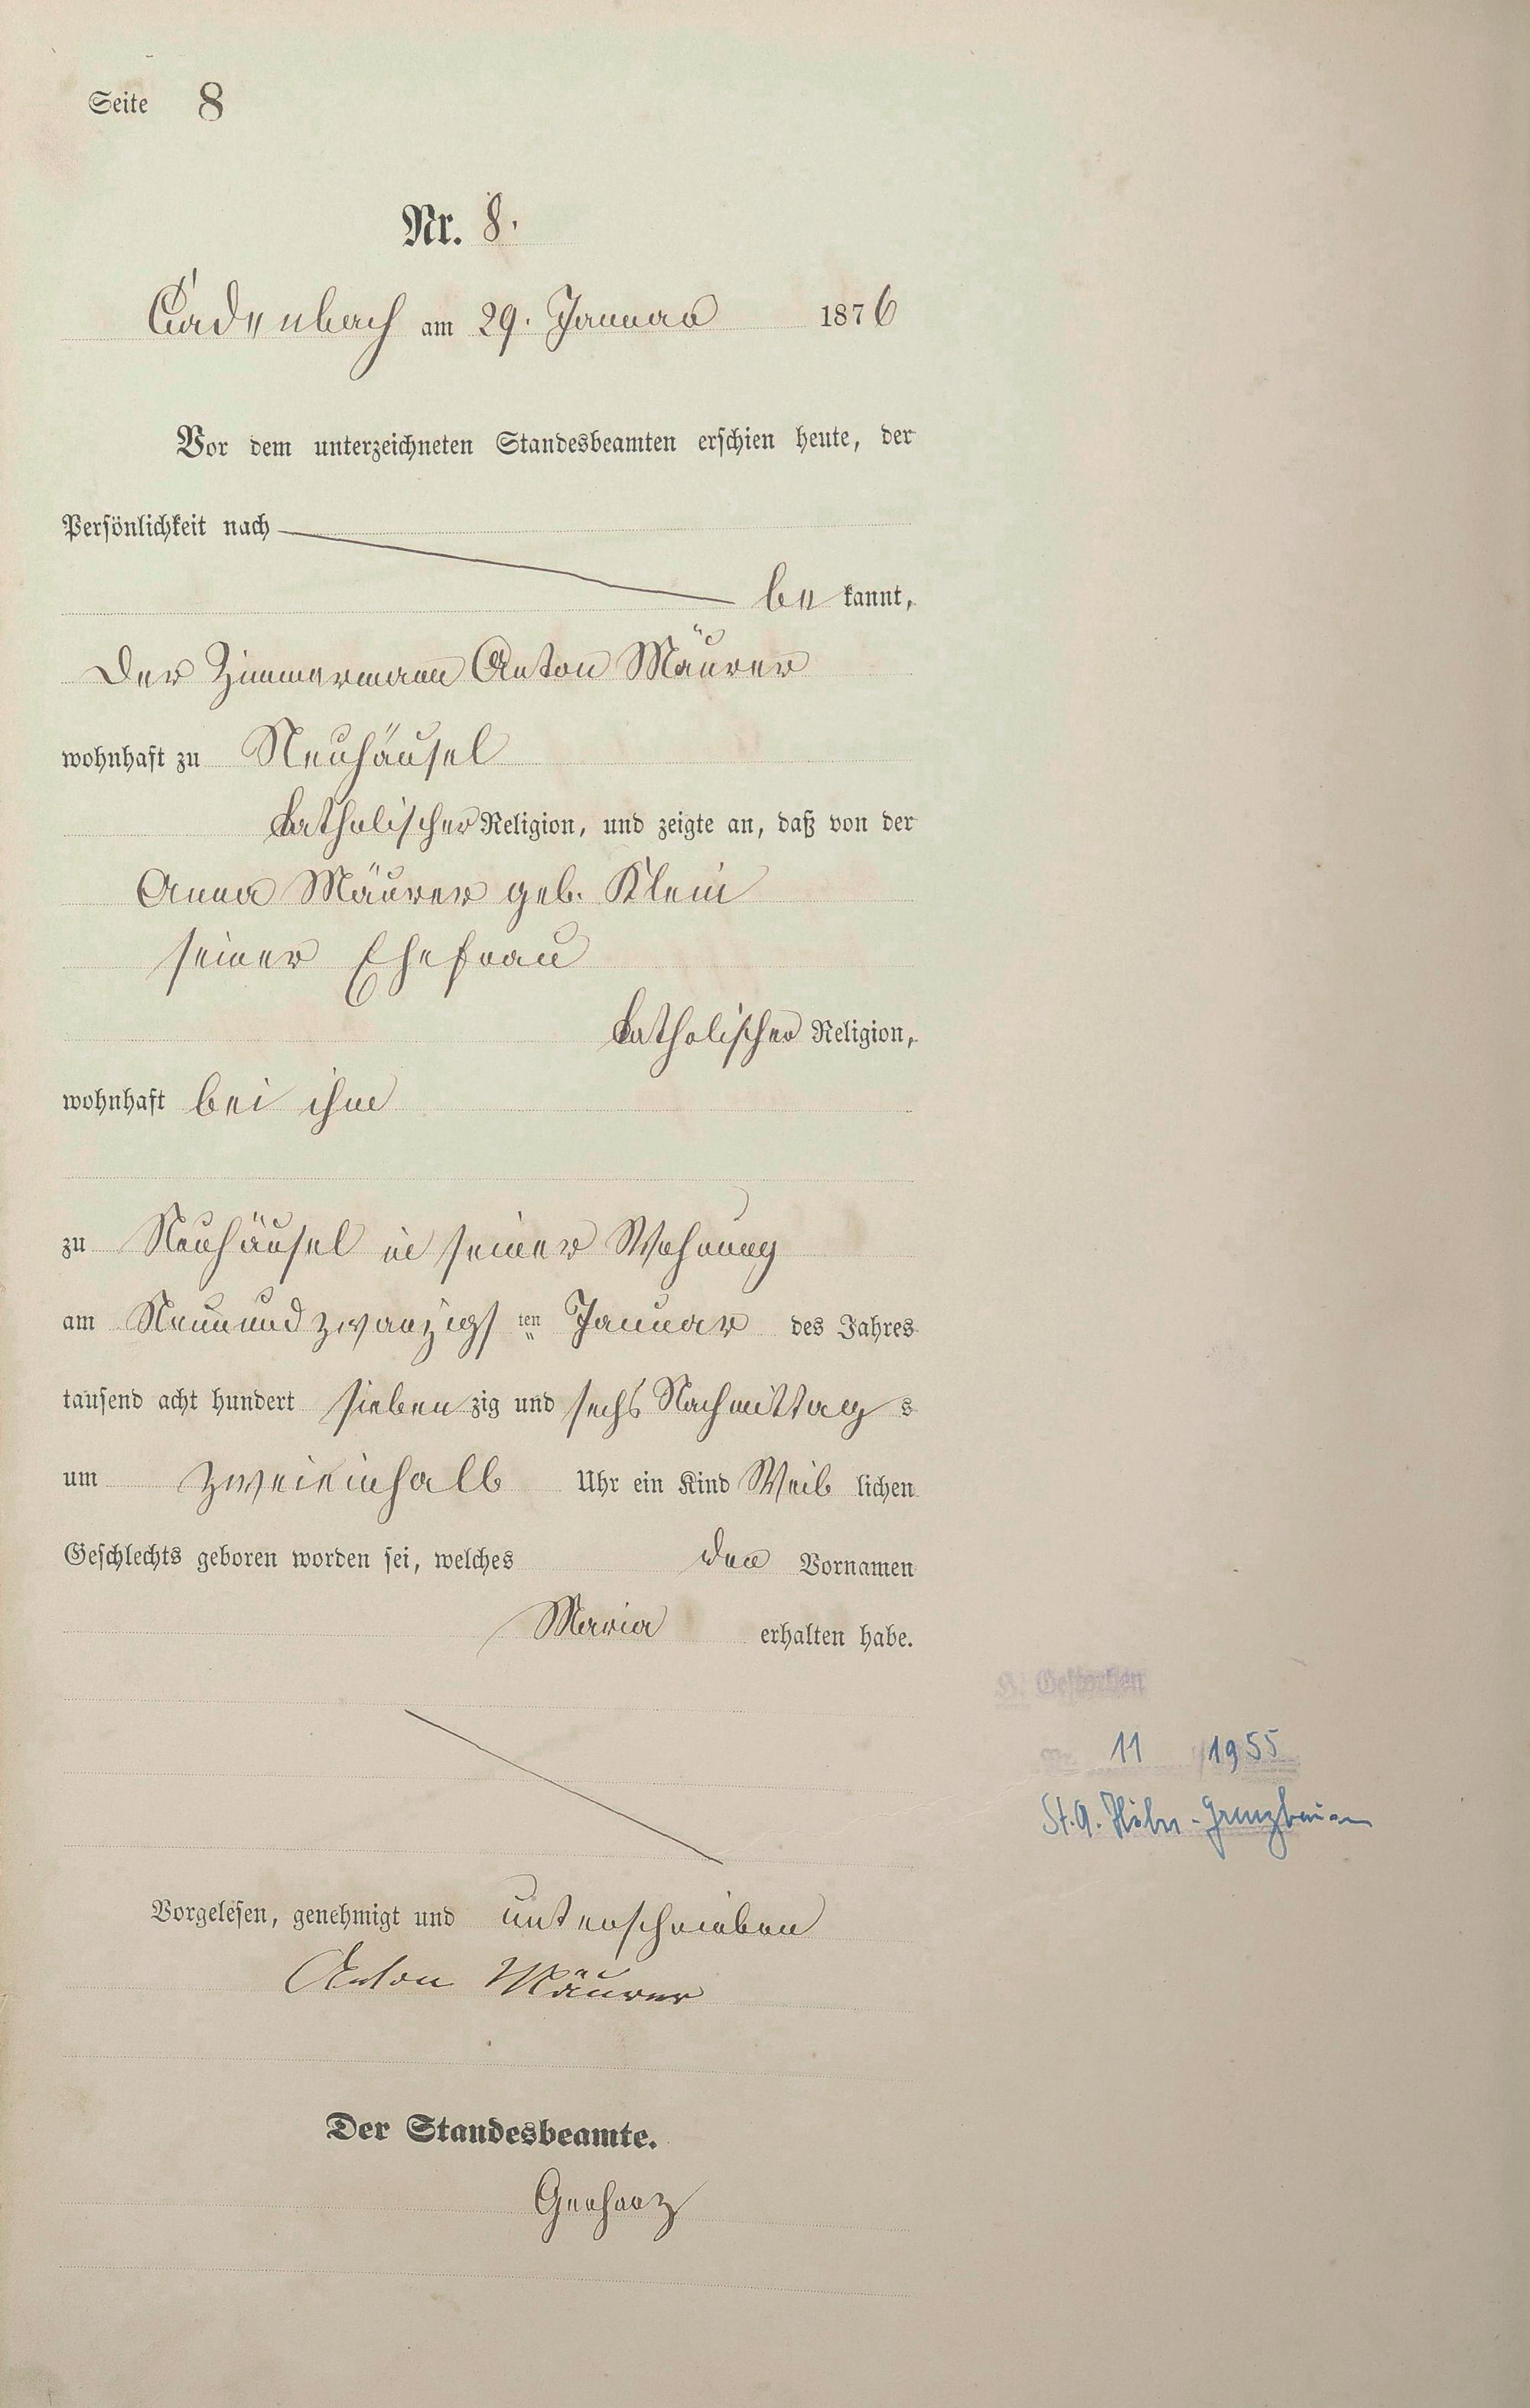 Seite 8
Nr. 8.
Cadenbach am 29. Januar 1876
Vor dem unterzeichneten Standesbeamten erschien heute, der
Persönlichkeit nach
be kannt,
der Zimmermann Anton Mäurer
wohnhaft zu Neuhäusel
katholischer Religion, und zeigte an, daß von der
Anna Mäurer geb. Klein
seiner Ehefrau
katholischer Religion,
wohnhaft bei ihm
zu Neuhäusel in seiner Wohnung
am Neunundzwanzigs ten Januar des Jahres
tausend acht hundert sieben zig und sechs Nachmittag s
um zweieinhalb Uhr ein Kind Weib lichen
Geschlechts geboren worden sei, welches den Vornamen
Maria erhalten habe.
Gestorben
Nr. 11 1955
St.A. Höhr-Grenzhausen
Vorgelesen, genehmigt und unterschrieben
Anton Mäurer
Der Standesbeamte.
Gerharz